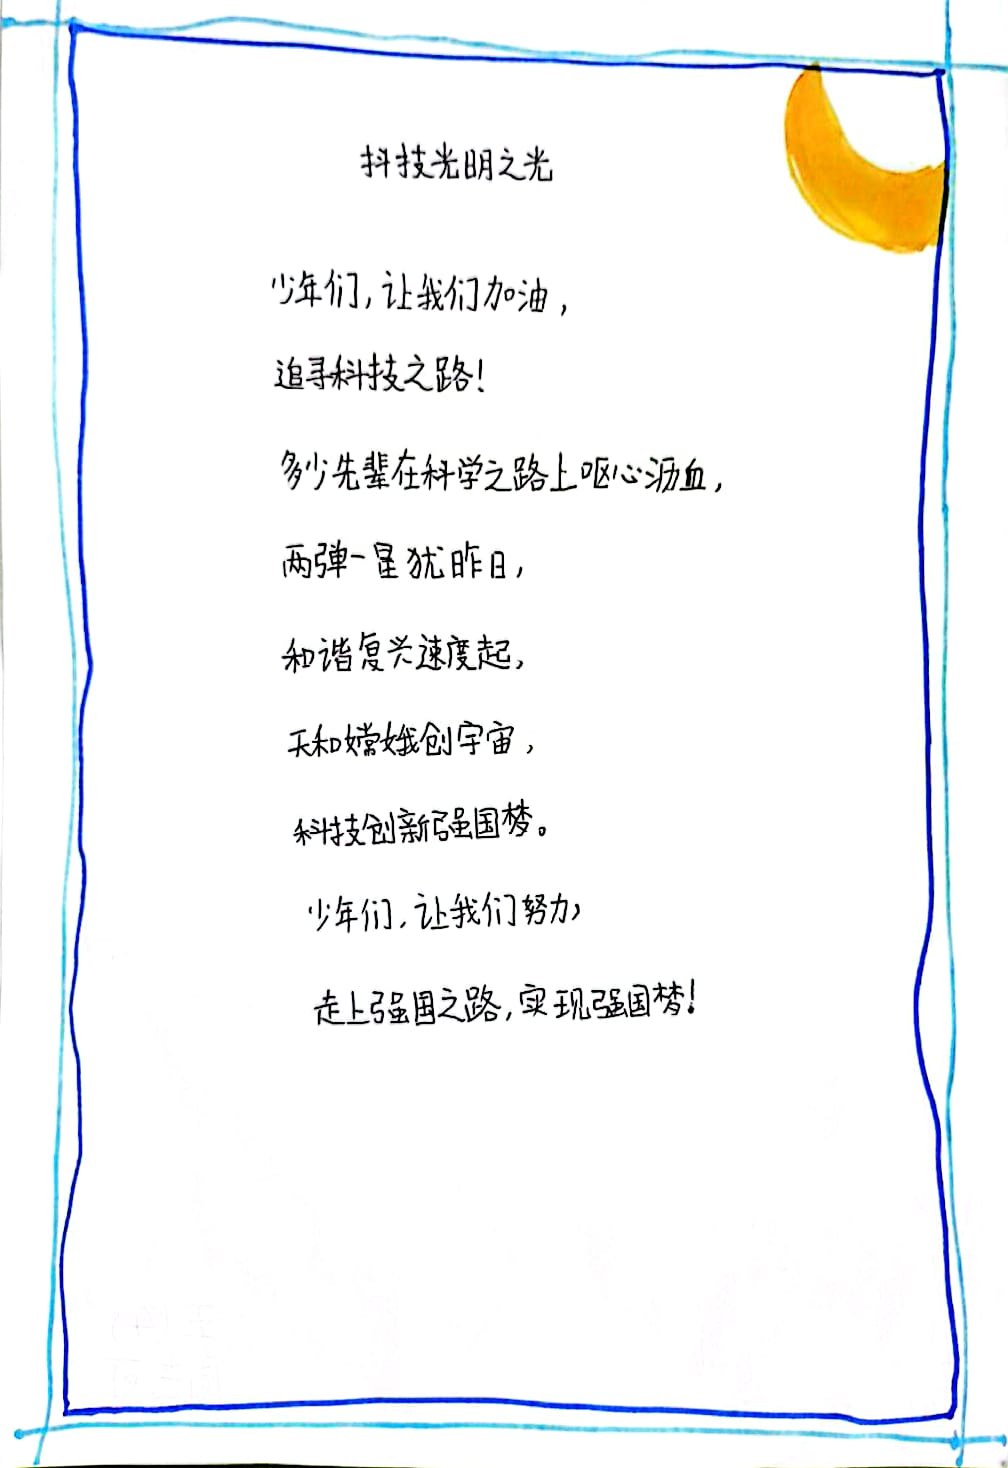 科技光明之光
少年们,让我们加油,
追寻科技之路!
多少先辈在科学之路上呕心沥血,
两弹一星犹昨日,
和谐复兴速度起,
天和嫦娥创宇宙,
科技创新强国梦。
少年们,让我们努力,
走上强国之路,实现强国梦!